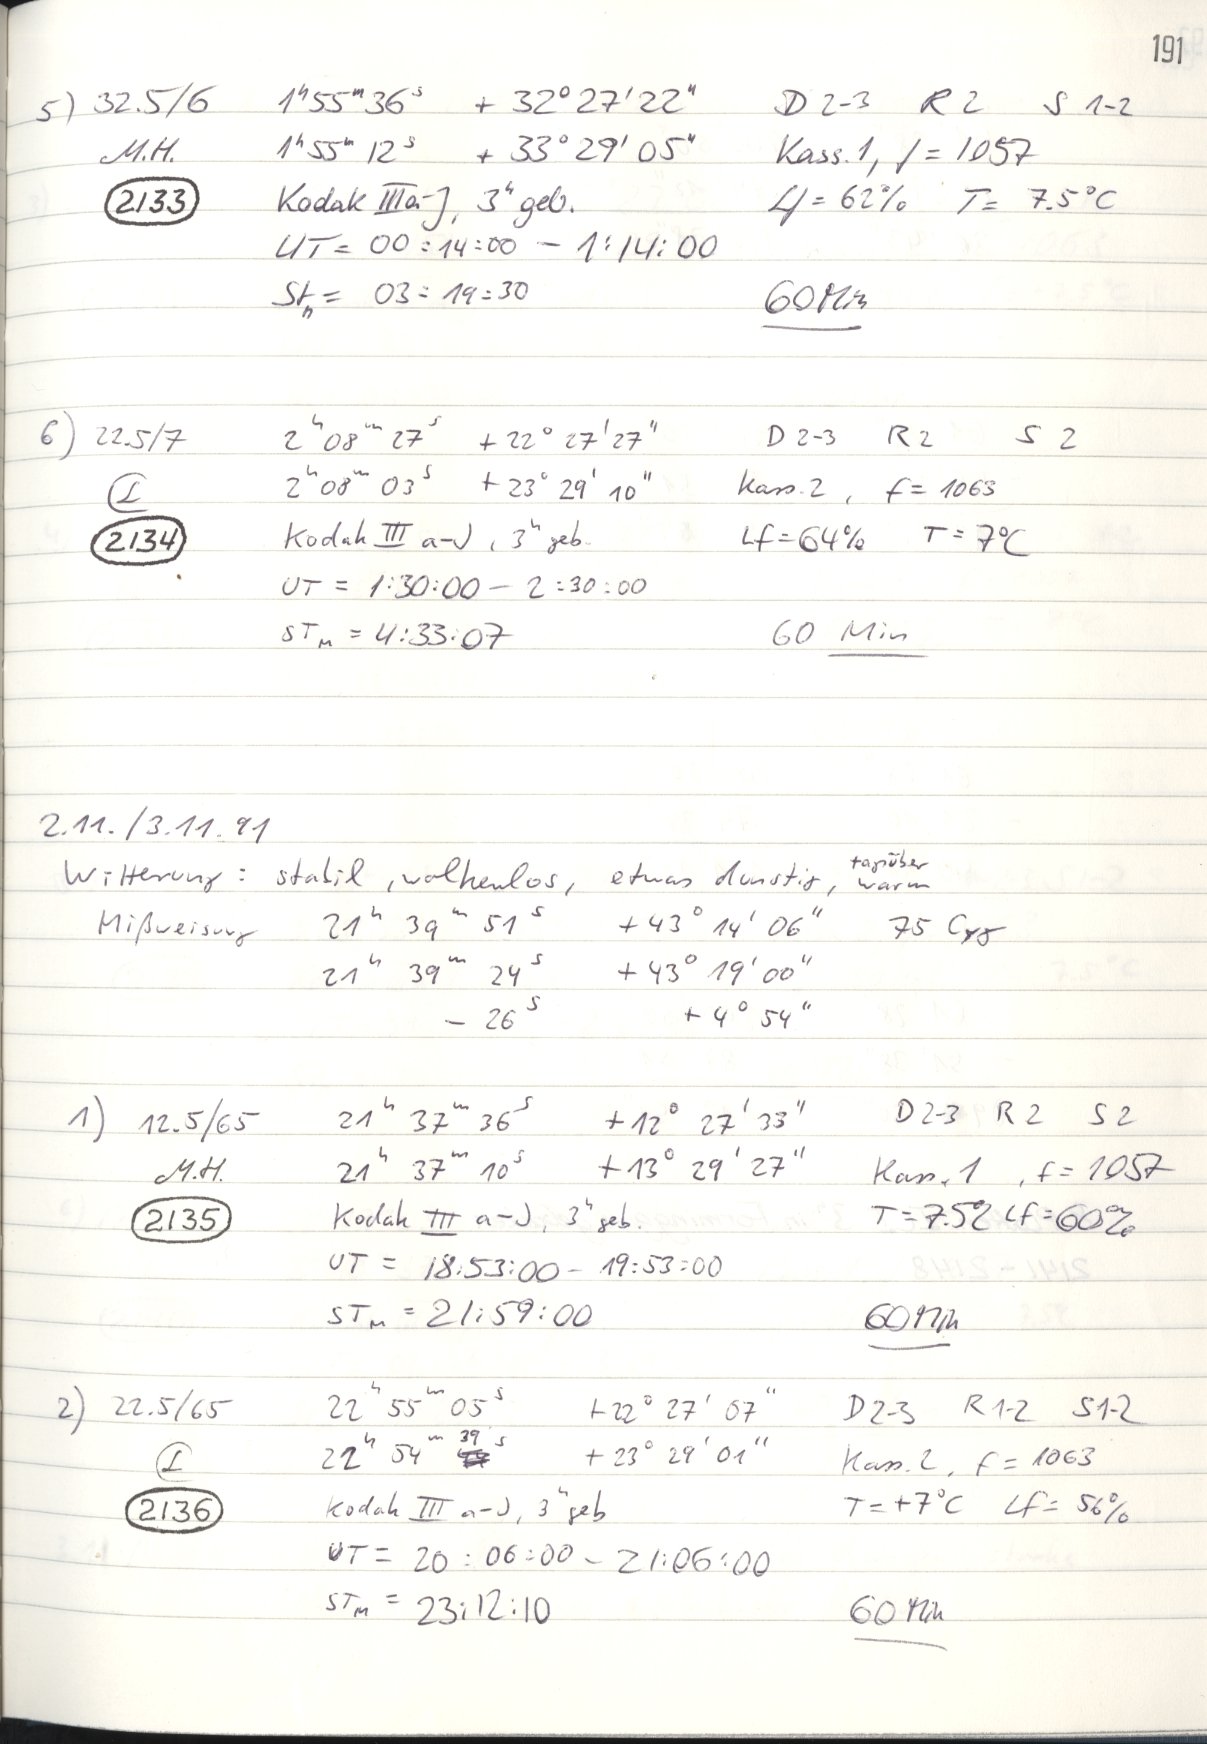 191
5) 32.5/6 1ʰ55ᵐ36ˢ + 32° 27' 22" D 2-3 R 2 S 1-2
M.H. 1ʰ55ᵐ 12ˢ + 33° 29' 05" Kass. 1, f = 1057
2133 Kodak IIIa-J, 3ʰ geb. Lf = 62% T = 7.5°C
UT = 00:14:00 – 1:14:00
STₘ = 03:19:30 60 Min
6) 22.5/7 2ʰ 08ᵐ 27ˢ + 22° 27' 27" D 2-3 R 2 S 2
I 2ʰ 08ᵐ 03ˢ + 23° 29' 10" Kass. 2, f = 1063
2134 Kodak III a-J, 3ʰ geb. Lf = 64% T = 7°C
UT = 1:30:00 – 2:30:00
STₘ = 4:33:07 60 Min
2.11./3.11.91
Witterung: stabil, wolkenlos, etwas dunstig, tagsüber warm
Mißweisung 21ʰ 39ᵐ 51ˢ + 43° 14' 06" 75 Cyg
21ʰ 39ᵐ 24ˢ + 43° 19' 00"
– 26ˢ + 4° 54"
1) 12.5/65 21ʰ 37ᵐ 36ˢ + 12° 27' 33" D 2-3 R 2 S 2
M.H. 21ʰ 37ᵐ 10ˢ + 13° 29' 27" Kass. 1, f = 1057
2135 Kodak III a-J, 3ʰ geb. T = 7.5° Lf = 60%
UT = 18:53:00 – 19:53:00
STₘ = 21:59:00 60 Min
2) 22.5/65 22ʰ 55ᵐ 05ˢ + 22° 27' 07" D 2-3 R 1-2 S 1-2
I 22ʰ 54ᵐ 39ˢ + 23° 29' 01" Kass. 2, f = 1063
2136 Kodak III a-J, 3ʰ geb T = +7°C Lf = 56%
UT = 20:06:00 – 21:06:00
STₘ = 23:12:10 60 Min